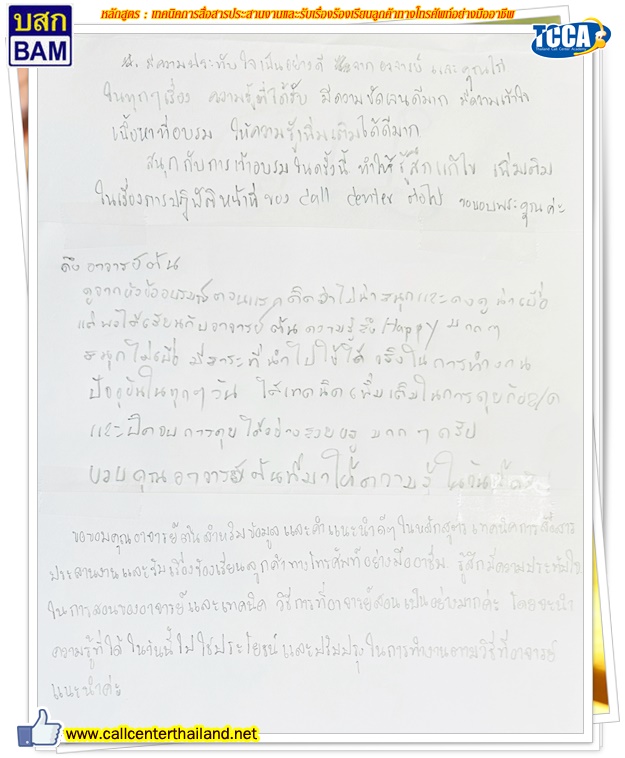 หลักสูตร : เทคนิคการสื่อสารประสานงานและรับเรื่องร้องเรียนลูกค้าทางโทรศัพท์อย่างมืออาชีพ
บสก
BAM
TCCA
Thailand Call Center Academy
มีความประทับใจเป็นอย่างดี จาก อาจารย์ และ
ในทุกๆเรื่อง ความรู้ที่ได้รับ มีความชัดเจนดีมาก มีความเข้าใจ
เนื้อหาที่อบรม ให้ความรู้เพิ่มเติมได้ดีมาก
สนุกกับการเข้าอบรมในครั้งนี้ ทำให้รู้สึกแก้ไข เพิ่มเติม
ในเรื่องการปฏิบัติหน้าที่ของ Call Center ต่อไป ขอบพระคุณค่ะ
ถึง อาจารย์ต้น
ดูจากหัวข้ออบรมตอนแรกคิดว่าไม่น่าสนุกและคงดูน่าเบื่อ
แต่พอได้เรียนกับอาจารย์ต้น ความรู้สึก Happy มากๆ
สนุกไม่เบื่อ มีสาระที่นำไปใช้ได้จริงในการทำงาน
ปัจจุบันในทุกๆวัน ได้เทคนิคเพิ่มเติมในการคุย
และปิดจบการคุยได้อย่างสวยหรู มากๆ ครับ
ขอบคุณอาจารย์ต้นที่มาให้ความรู้ในวันนี้
ขอขอบคุณอาจารย์ต้นสำหรับข้อมูลและคำแนะนำดีๆในหลักสูตร เทคนิคการสื่อสาร
ประสานงานและรับเรื่องร้องเรียนลูกค้าทางโทรศัพท์อย่างมืออาชีพ รู้สึกมีความประทับใจ
ในการสอนของอาจารย์และเทคนิค วิธีการที่อาจารย์สอนเป็นอย่างมากค่ะ โดยจะนำ
ความรู้ที่ได้ในวันนี้ไปใช้ประโยชน์และปรับปรุงในการทำงานตามวิธีที่อาจารย์
แนะนำค่ะ
www.callcenterthailand.net